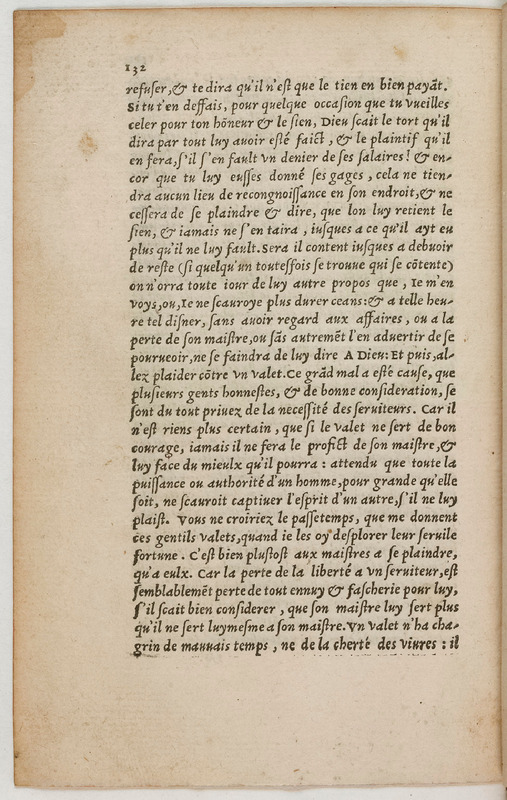 132
refuser, & te dira qu'il n'eſt que le tien en bien payãt.
Si tu t'en deffais, pour quelque occaſion que tu vueilles
celer pour ton hõneur & le ſien, Dieu ſcait le tort qu'il
dira par tout luy auoir eſté faict, & le plaintif qu'il
en fera, s'il s'en fault vn denier de ſes ſalaires! & en-
cor que tu luy euſſes donné ſes gages, cela ne tien-
dra aucun lieu de recongnoiſſance en ſon endroit, & ne
ceſſera de ſe plaindre & dire, que lon luy retient le
ſien, & iamais ne s'en taira, iuſques a ce qu'il ayt eu
plus qu'il ne luy fault. Sera il content iuſques a debuoir
de reſte (ſi quelqu'un touteſfois ſe trouue qui ſe cõtente)
on n'orra toute iour de luy autre propos que, Ie m'en
voys, ou, Ie ne ſcauroye plus durer ceans: & a telle heu-
re tel diſner, ſans auoir regard aux affaires, ou a la
perte de ſon maiſtre, ou ſãs autremẽt l'en aduertir de ſe
pourueoir, ne ſe faindra de luy dire A Dieu: Et puis, al-
lez plaider cõtre vn valet. Ce grãd mal a eſté cauſe, que
pluſieurs gents honneſtes, & de bonne conſideration, ſe
ſont du tout priuez de la neceſſité des ſeruiteurs. Car il
n'eſt riens plus certain, que ſi le valet ne ſert de bon
courage, iamais il ne fera le profict de ſon maiſtre, &
luy face du mieulx qu'il pourra: attendu que toute la
puiſſance ou authorité d'un homme, pour grande qu'elle
ſoit, ne ſcauroit captiuer l'eſprit d'un autre, s'il ne luy
plaiſt. Vous ne croiriez le paſſetemps, que me donnent
ces gentils valets, quand ie les oy deſplorer leur ſeruile
fortune. C'eſt bien pluſtoſt aux maiſtres a ſe plaindre,
qu'a eulx. Car la perte de la liberté a vn ſeruiteur, eſt
ſemblablemẽt perte de tout ennuy & faſcherie pour luy,
s'il ſcait bien conſiderer, que ſon maiſtre luy ſert plus
qu'il ne ſert luymeſme a ſon maiſtre. Vn valet n'ha cha-
grin de mauuais temps, ne de la cherté des viures: il